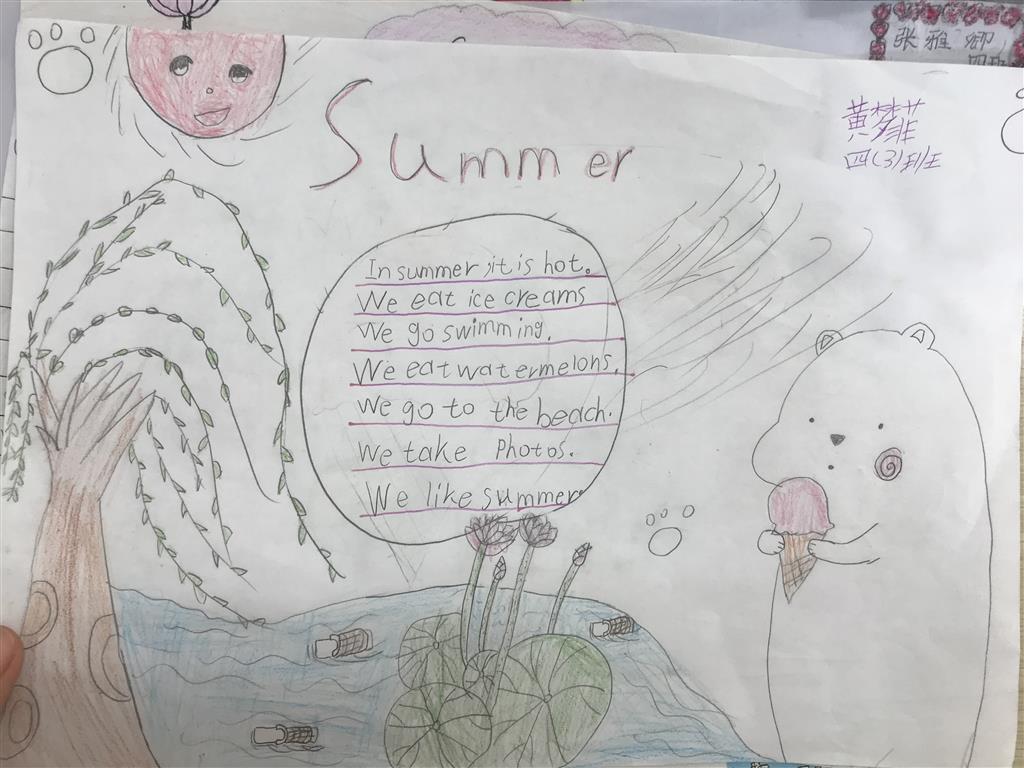 张雅卿
四班
Summer
黄梦菲
四(3)班
In summer it is hot.
We eat ice creams
We go swimming.
We eat watermelons.
We go to the beach.
We take Photos.
We like summer